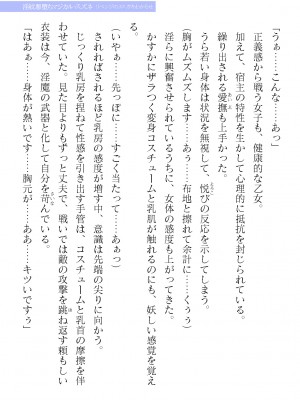 「うぁ……こんな……あっ」
正義感から戦う女子も、健康的な乙女。
加えて、宿主の特性を生かして心理的に抵抗を封じられている。
繰り出される愛撫も上手かった。
うら若い身体は状況を無視して、悦びの反応を示してしまう。
（胸がムズムズします……あぅ……布地と擦れて余計に……くぅぅ）
淫らに興奮させられているうちに、女体の感度も上がってきた。
かすかにザラつく変身コスチュームと乳肌が触れるのにも、妖しい感覚を覚え
る。
（いやぁ……先っぽに……すごく当たって……あぁっ）
されればされるほど乳房の感度が増す中、意識は先端の尖りに向かう。
じっくり乳房を捏ねて性感を引き出す手管は、コスチュームと乳首の摩擦を伴
わせていた。見た目よりもずっと丈夫で、戦いでは敵の攻撃を跳ね返す頼もしい
衣装は今、淫魔の武器と化して自分を苛んでいる。
「はぁぁ……身体が熱いです……胸元が　ああ……キツいですぅ」